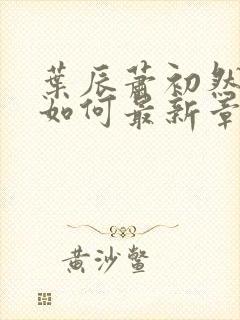 葉辰蕭初然
如何最新章
黄沙鳖